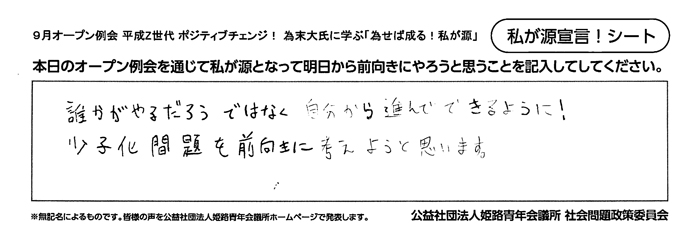 9月オープン例会 平成Z世代 ポジティブチェンジ! 為末大氏に学ぶ「為せば成る!私が源」
私が源宣言!シート
本日のオープン例会を通じて私が源となって明日から前向きにやろうと思うことを記入してしてください。
誰かがやるだろう ではなく 自分から 進んで できるように!
少子化問題を前向きに考えようと思います。
※無記名によるものです。皆様の声を公益社団法人姫路青年会議所ホームページで発表します。
公益社団法人姫路青年会議所 社会問題政策委員会